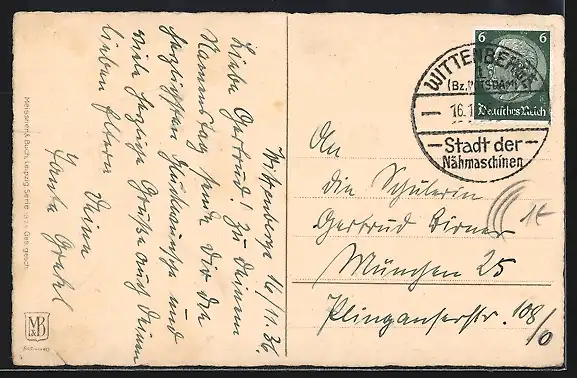 Wittenberge 16/11.36.
Liebe Gertrud! Zu Deinem
Namenstag sende Dir die
herzlichsten Glückwünsche und
viele herzliche Grüße auch Deinen
lieben Eltern
Deine
Meissner & Buch, Leipzig Serie
Ges. gesch.
M&B
6 6
Deutsches Reich
WITTENBERGE
(Bz. POTSDAM)
16.1
Stadt der
Nähmaschinen
An
die Schülerin
Gertrud Birner
München 25
Plinganserstr. 108/0
1€